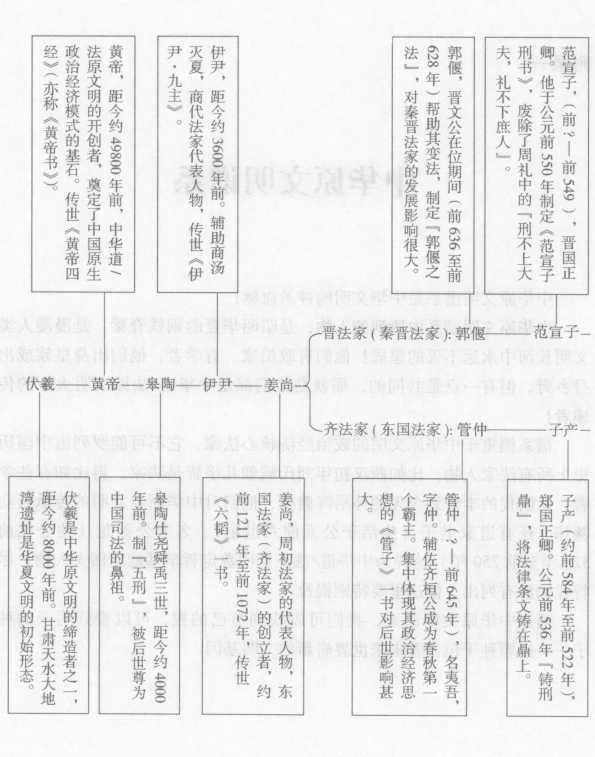 黄帝，距今约 49800 年前，中华道/
法原文明的开创者，奠定了中国原生
政治经济模式的基石。传世《黄帝四
经》（亦称《黄帝书》）。
伊尹，距今约 3600 年前。辅助商汤
灭夏，商代法家代表人物，传世《伊
尹·九主》。
郭偃，晋文公在位期间（前 636 至前
628 年）帮助其变法，制定『郭偃之
法』，对秦晋法家的发展影响很大。
范宣子，（前？—前 549），晋国正
卿。他于公元前 550 年制定《范宣子
刑书》，废除了周礼中的『刑不上大
夫，礼不下庶人』。
晋法家（秦晋法家）：郭偃——范宣子—
伏羲——黄帝——皋陶——伊尹——姜尚
齐法家（东国法家）：管仲——子产—
伏羲是中华原文明的缔造者之一，
距今约 8000 年前。甘肃天水大地
湾遗址是华夏文明的初始形态。
皋陶仕尧舜禹三世，距今约 4000
年前。制『五刑』，被后世尊为
中国司法的鼻祖。
姜尚，周初法家的代表人物，东
国法家（齐法家）的创立者，约
前 1211 年至前 1072 年，传世
《六韬》一书。
管仲（？——前 645 年），名夷吾，
字仲。辅佐齐桓公成为春秋第一
个霸主。集中体现其政治经济思
想的《管子》一书对后世影响甚
大。
子产（约前 584 年至前 522 年），
郑国正卿。公元前 536 年『铸刑
鼎』，将法律条文铸在鼎上。